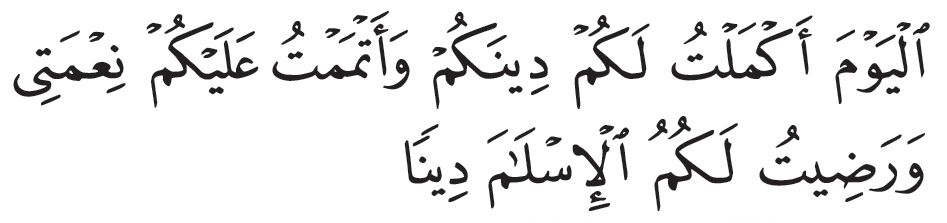 ٱلْيَوْمَ أَكْمَلْتُ لَكُمْ دِينَكُمْ وَأَتْمَمْتُ عَلَيْكُمْ نِعْمَتِى
وَرَضِيتُ لَكُمُ ٱلْإِسْلَٰمَ دِينًا